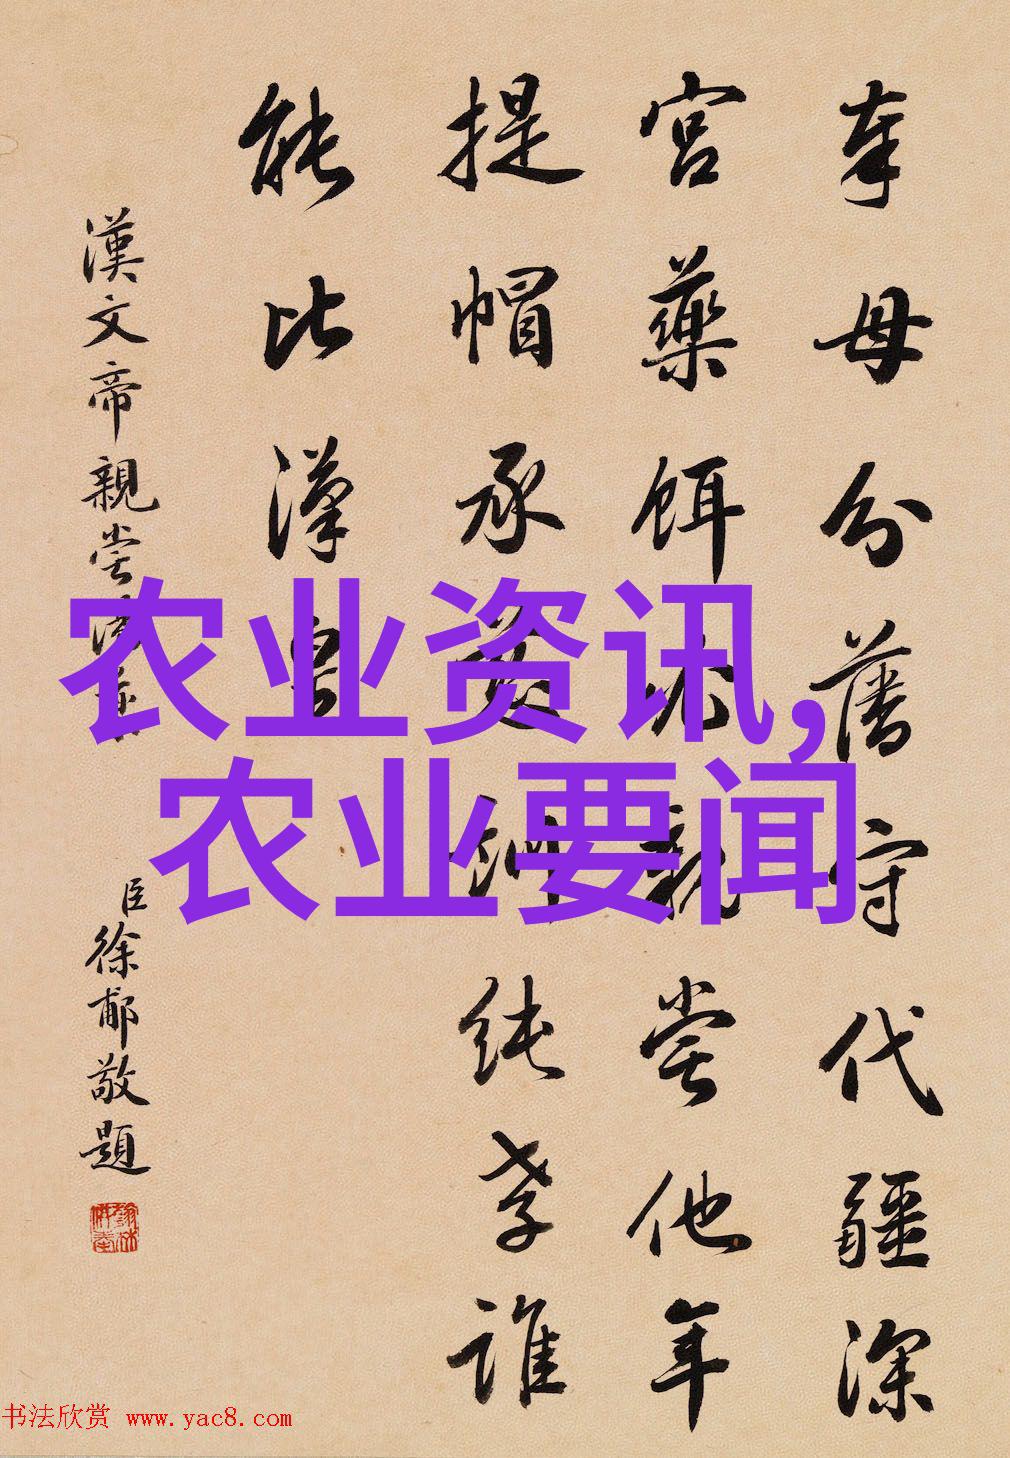 奉母分藩守代疆深
宮藥餌必親嘗他年
提帽承慈訓純孝誰
能比漢皇
漢文帝親嘗湯藥
臣徐郙敬題
农业资讯,
农业要闻
书法欣赏 www.yac8.com